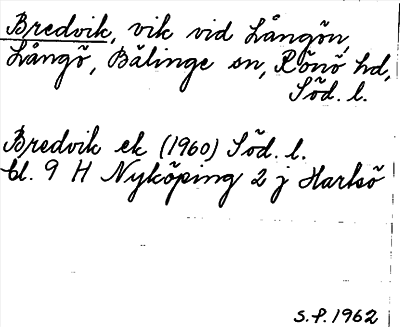 Bredvik, vik vid Långön,
Långö, Bälinge sn, Rönö hd,
Söd. l.
Bredvik ek (1960) Söd. l.
bl. 9 H Nyköping 2 j Hartsö
S.P. 1962